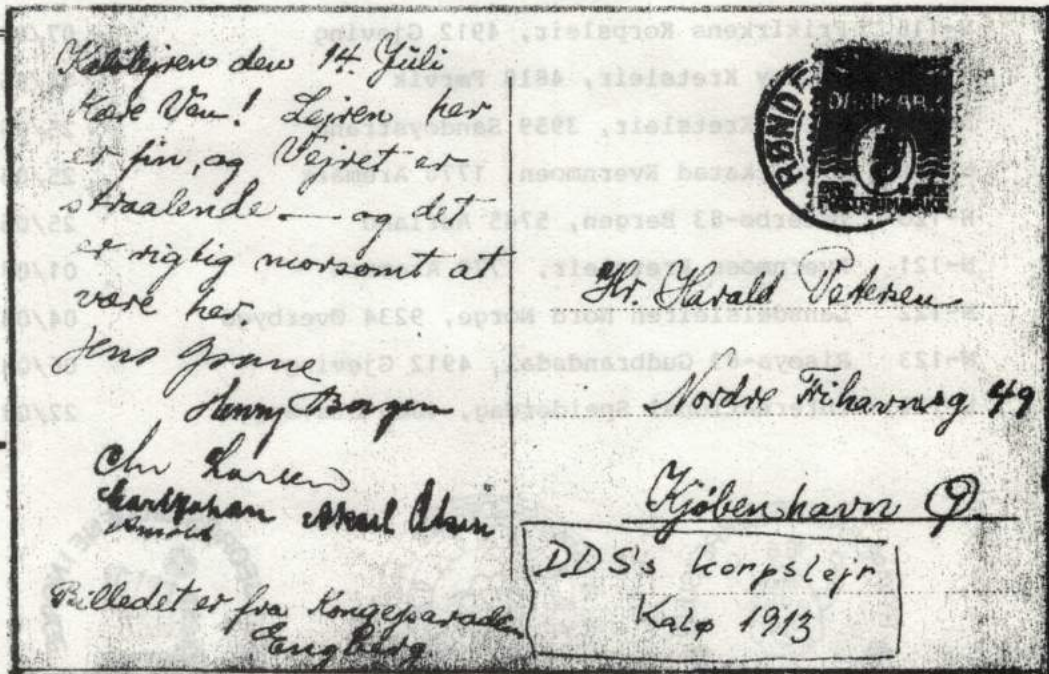 Kalølejren den 14. Juli
Kære Ven! Lejren her
er fin, og Vejret er
straalende — og det
er rigtig morsomt at
være her.
Jens Grane
Henry Borgen
Chr Larsen
Karl Johan Aksel Olsen
Arnold
Billedet er fra Kongeparaden
Engberg
RØNDE
DANMARK
POSTFRIMÆRKE
Hr. Harald Petersen
Nordre Frihavnsg 49
Kjøbenhavn Ø
DDSs korpslejr
Kalø 1913